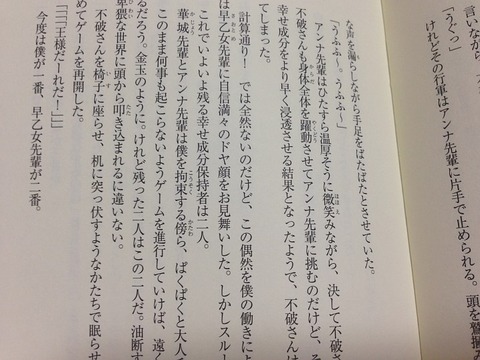 言いながら
「うぐっ」
けれどその行軍はアンナ先輩に片手で止められる。頭を鷲掴
な声を漏らしながら手足をばたばたとさせていた。
「うふふ～。うふふ～」
アンナ先輩はひたすら温厚そうに微笑みながら、決して不破さ
不破さんも身体全体を躍動させてアンナ先輩に挑むのだけど、そ
幸せ成分をより早く浸透させる結果となったようで、不破さんは
てしまった。
計算通り！　では全然ないのだけど、この偶然を僕の働きによ
は早乙女先輩に自信満々のドヤ顔をお見舞いした。しかしスルー
これでいよいよ残る幸せ成分保持者は二人。
華城先輩とアンナ先輩は僕を拘束する傍ら、ぱくぱくと大人
このまま何事も起こらないようゲームを進行していけば、遠く
るだろう。金玉のように。けれど残った二人はこの二人だ。油断す
卑猥な世界に頭から叩き込まれるに違いない。
不破さんを椅子に座らせ、机に突っ伏すようなかたちで眠らせ
めてゲームを再開した。
「「「王様だーれだ！」」」
今度は僕が一番、早乙女先輩が二番。